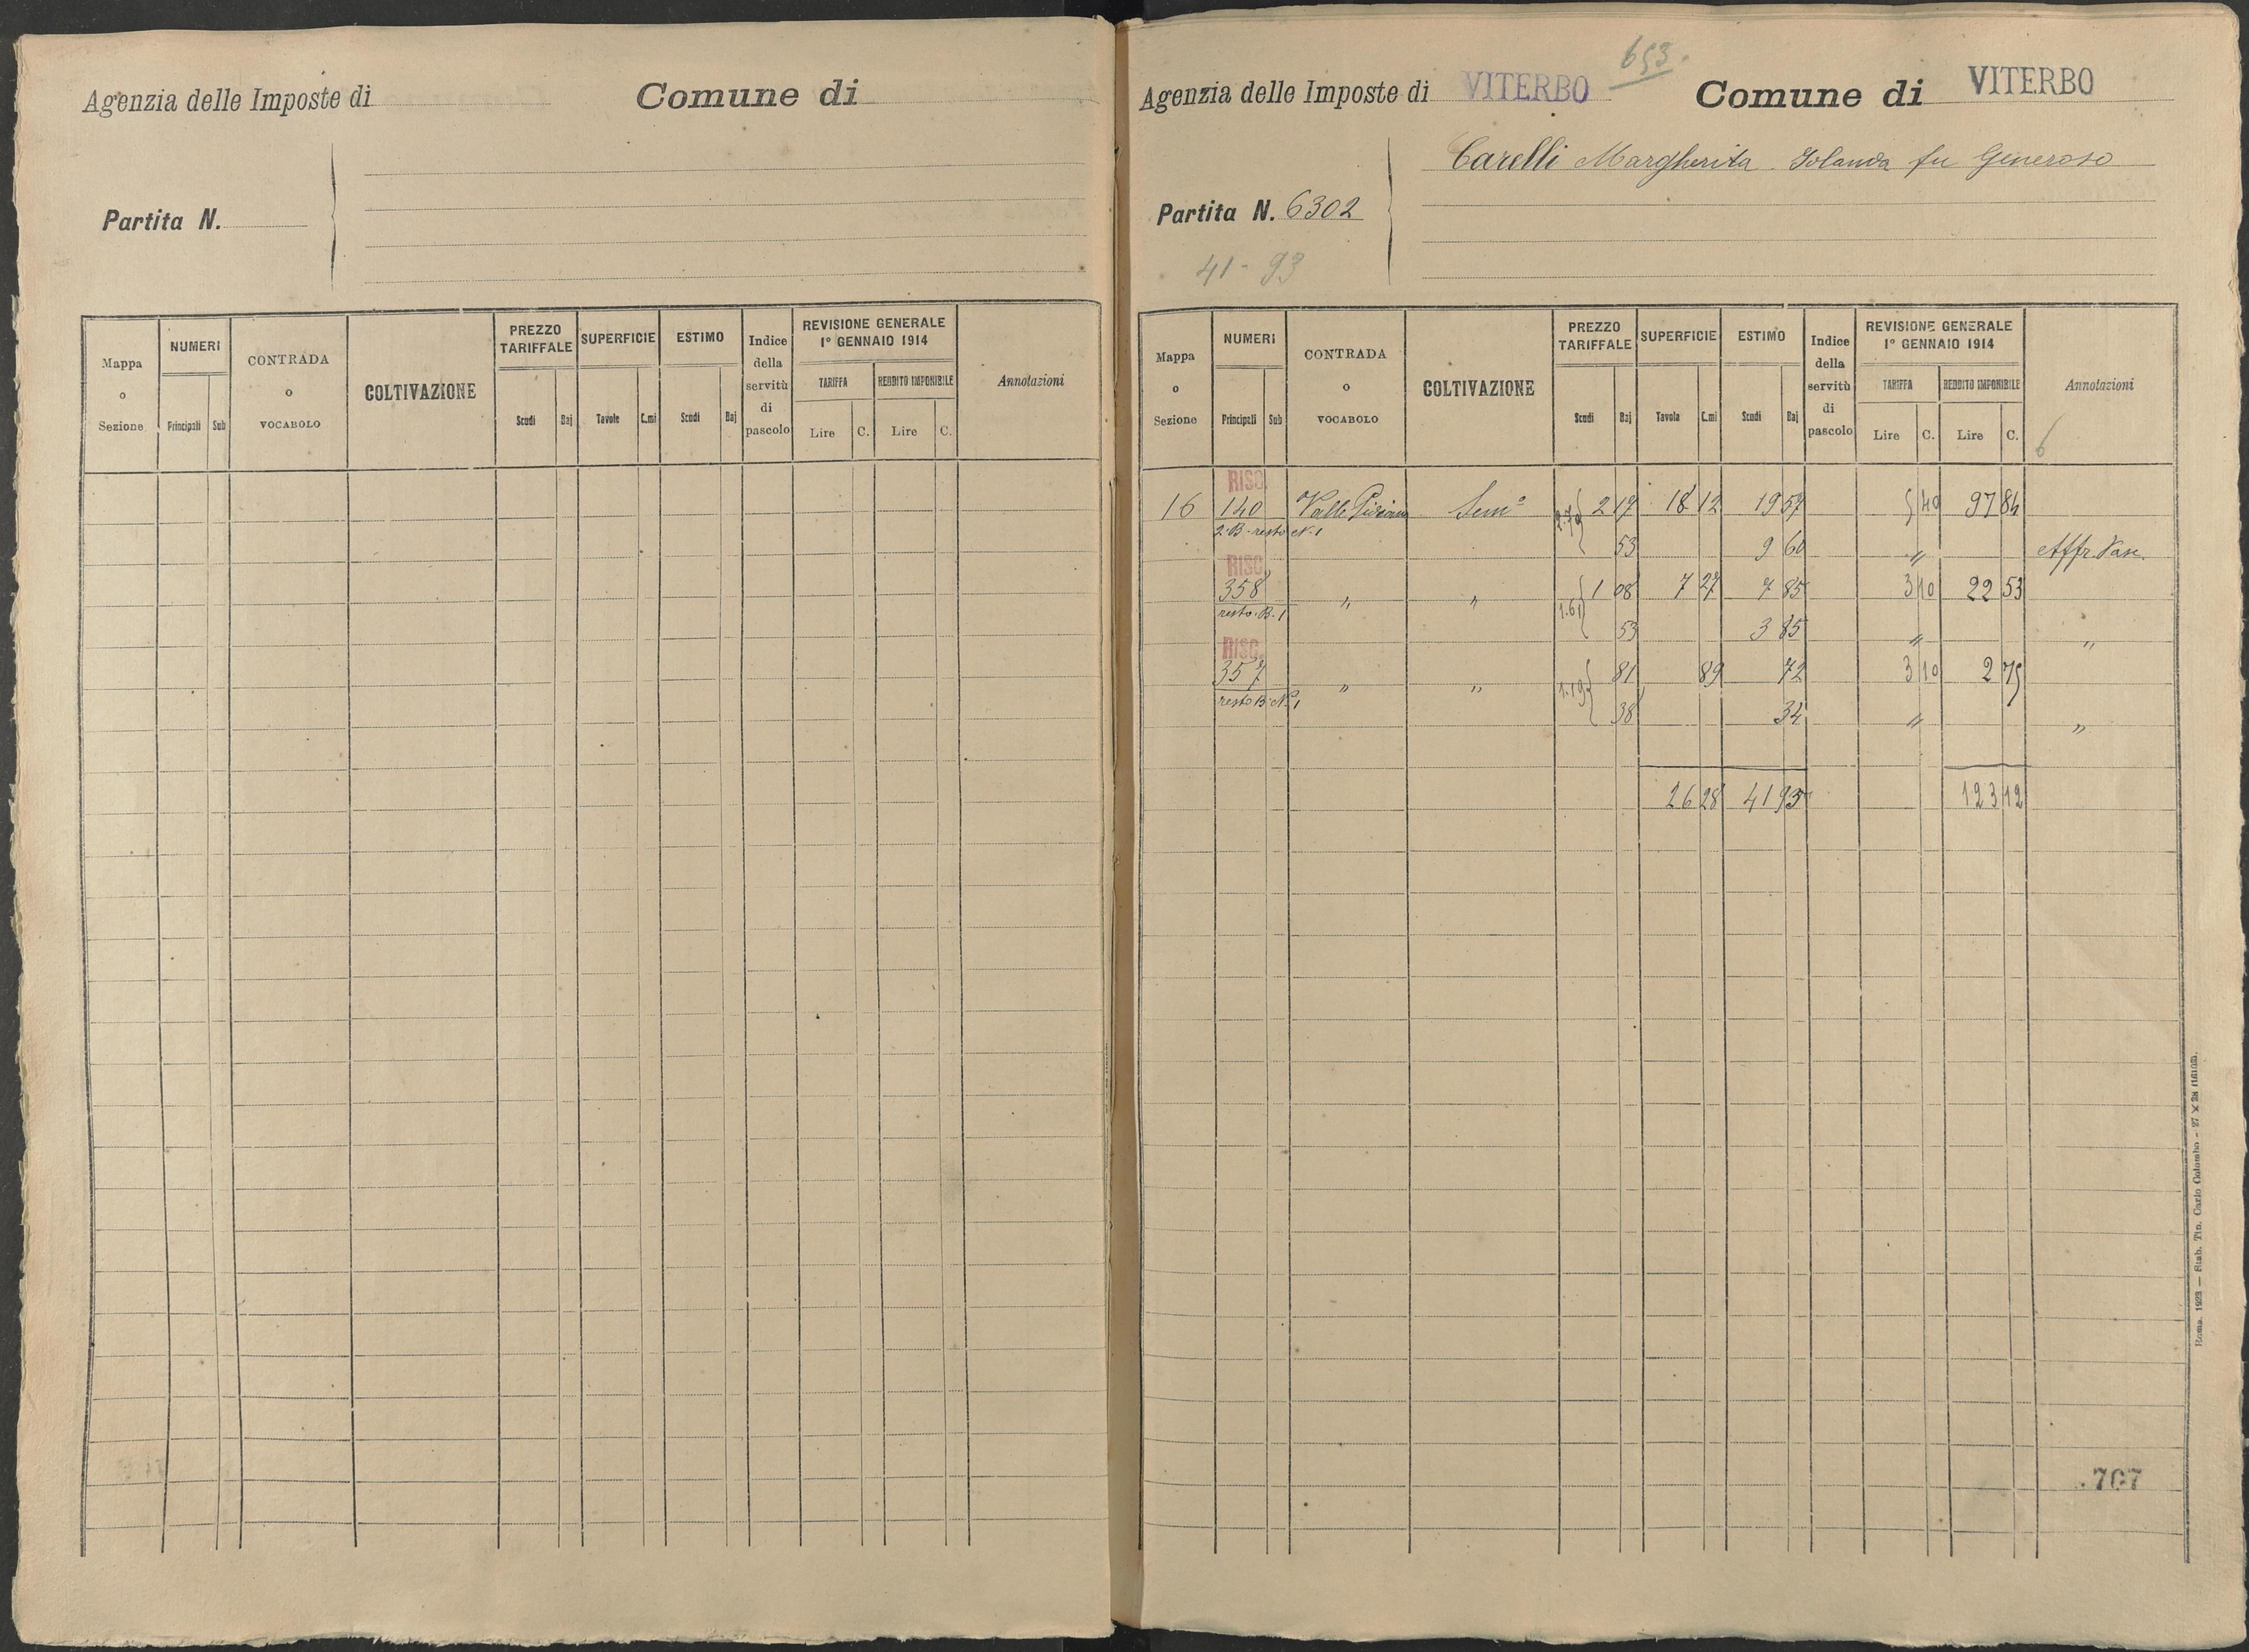 Agenzia delle Imposte di
Comune di
Partita N.
Mappa o Sezione
NUMERI
Principali Sub
CONTRADA o VOCABOLO
COLTIVAZIONE
PREZZO TARIFFALE
Scudi Baj
SUPERFICIE
Tavole C.mi
ESTIMO
Scudi Baj
Indice della servitù di pascolo
REVISIONE GENERALE
1° GENNAIO 1914
TARIFFA
Lire C.
REDDITO IMPONIBILE
Lire C.
Annotazioni
653.
Agenzia delle Imposte di VITERBO
Comune di VITERBO
Carelli Margherita Iolanda fu Generoso
Partita N. 6302
41-93
Mappa o Sezione
NUMERI
Principali Sub
CONTRADA o VOCABOLO
COLTIVAZIONE
PREZZO TARIFFALE
Scudi Baj
SUPERFICIE
Tavola C.mi
ESTIMO
Scudi Baj
Indice della servitù di pascolo
REVISIONE GENERALE
1° GENNAIO 1914
TARIFFA
Lire C.
REDDITO IMPONIBILE
Lire C.
Annotazioni
6
RISC.
16 140 Valle Sem° 2.70 2 17 18 12 19 57 5 40 97 84
2-B-resto N.1
53 9 60 " Affr. Pasc.
RISC.
358 " " 1.61 1 08 7 27 7 85 3 10 22 53
resto.B.1
53 3 85 " "
RISC.
357 " " 1.19 81 89 72 3 10 2 75
resto B.N.1
38 34 " "
26 28 41 93 123 12
707
Roma, 1923 — Stab. Tip. Carlo Colombo - 27 X